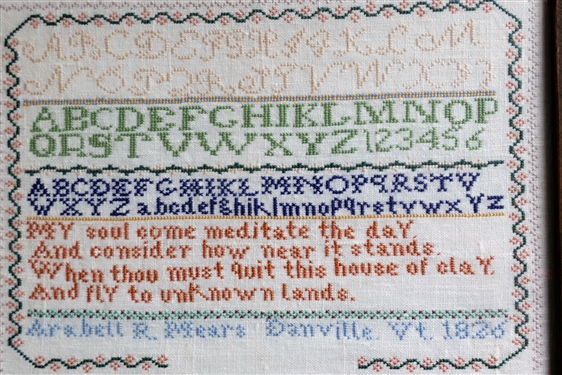 A B C D E F G H I J K L M
N O P Q R S T V W X Y Z
ABCDEFGHIKLMNOP
QRSTVWXYZ123456
ABCDEFGHIKLMNOPQRSTV
WXYZ abcdefghiklmnopqrstvwxyz
MY soul come meditate the daY.
And consider how near it stands.
When thou must quit this house of claY.
And flY to unknown lands.
Arabell R. Mears Danville Vt. 1826